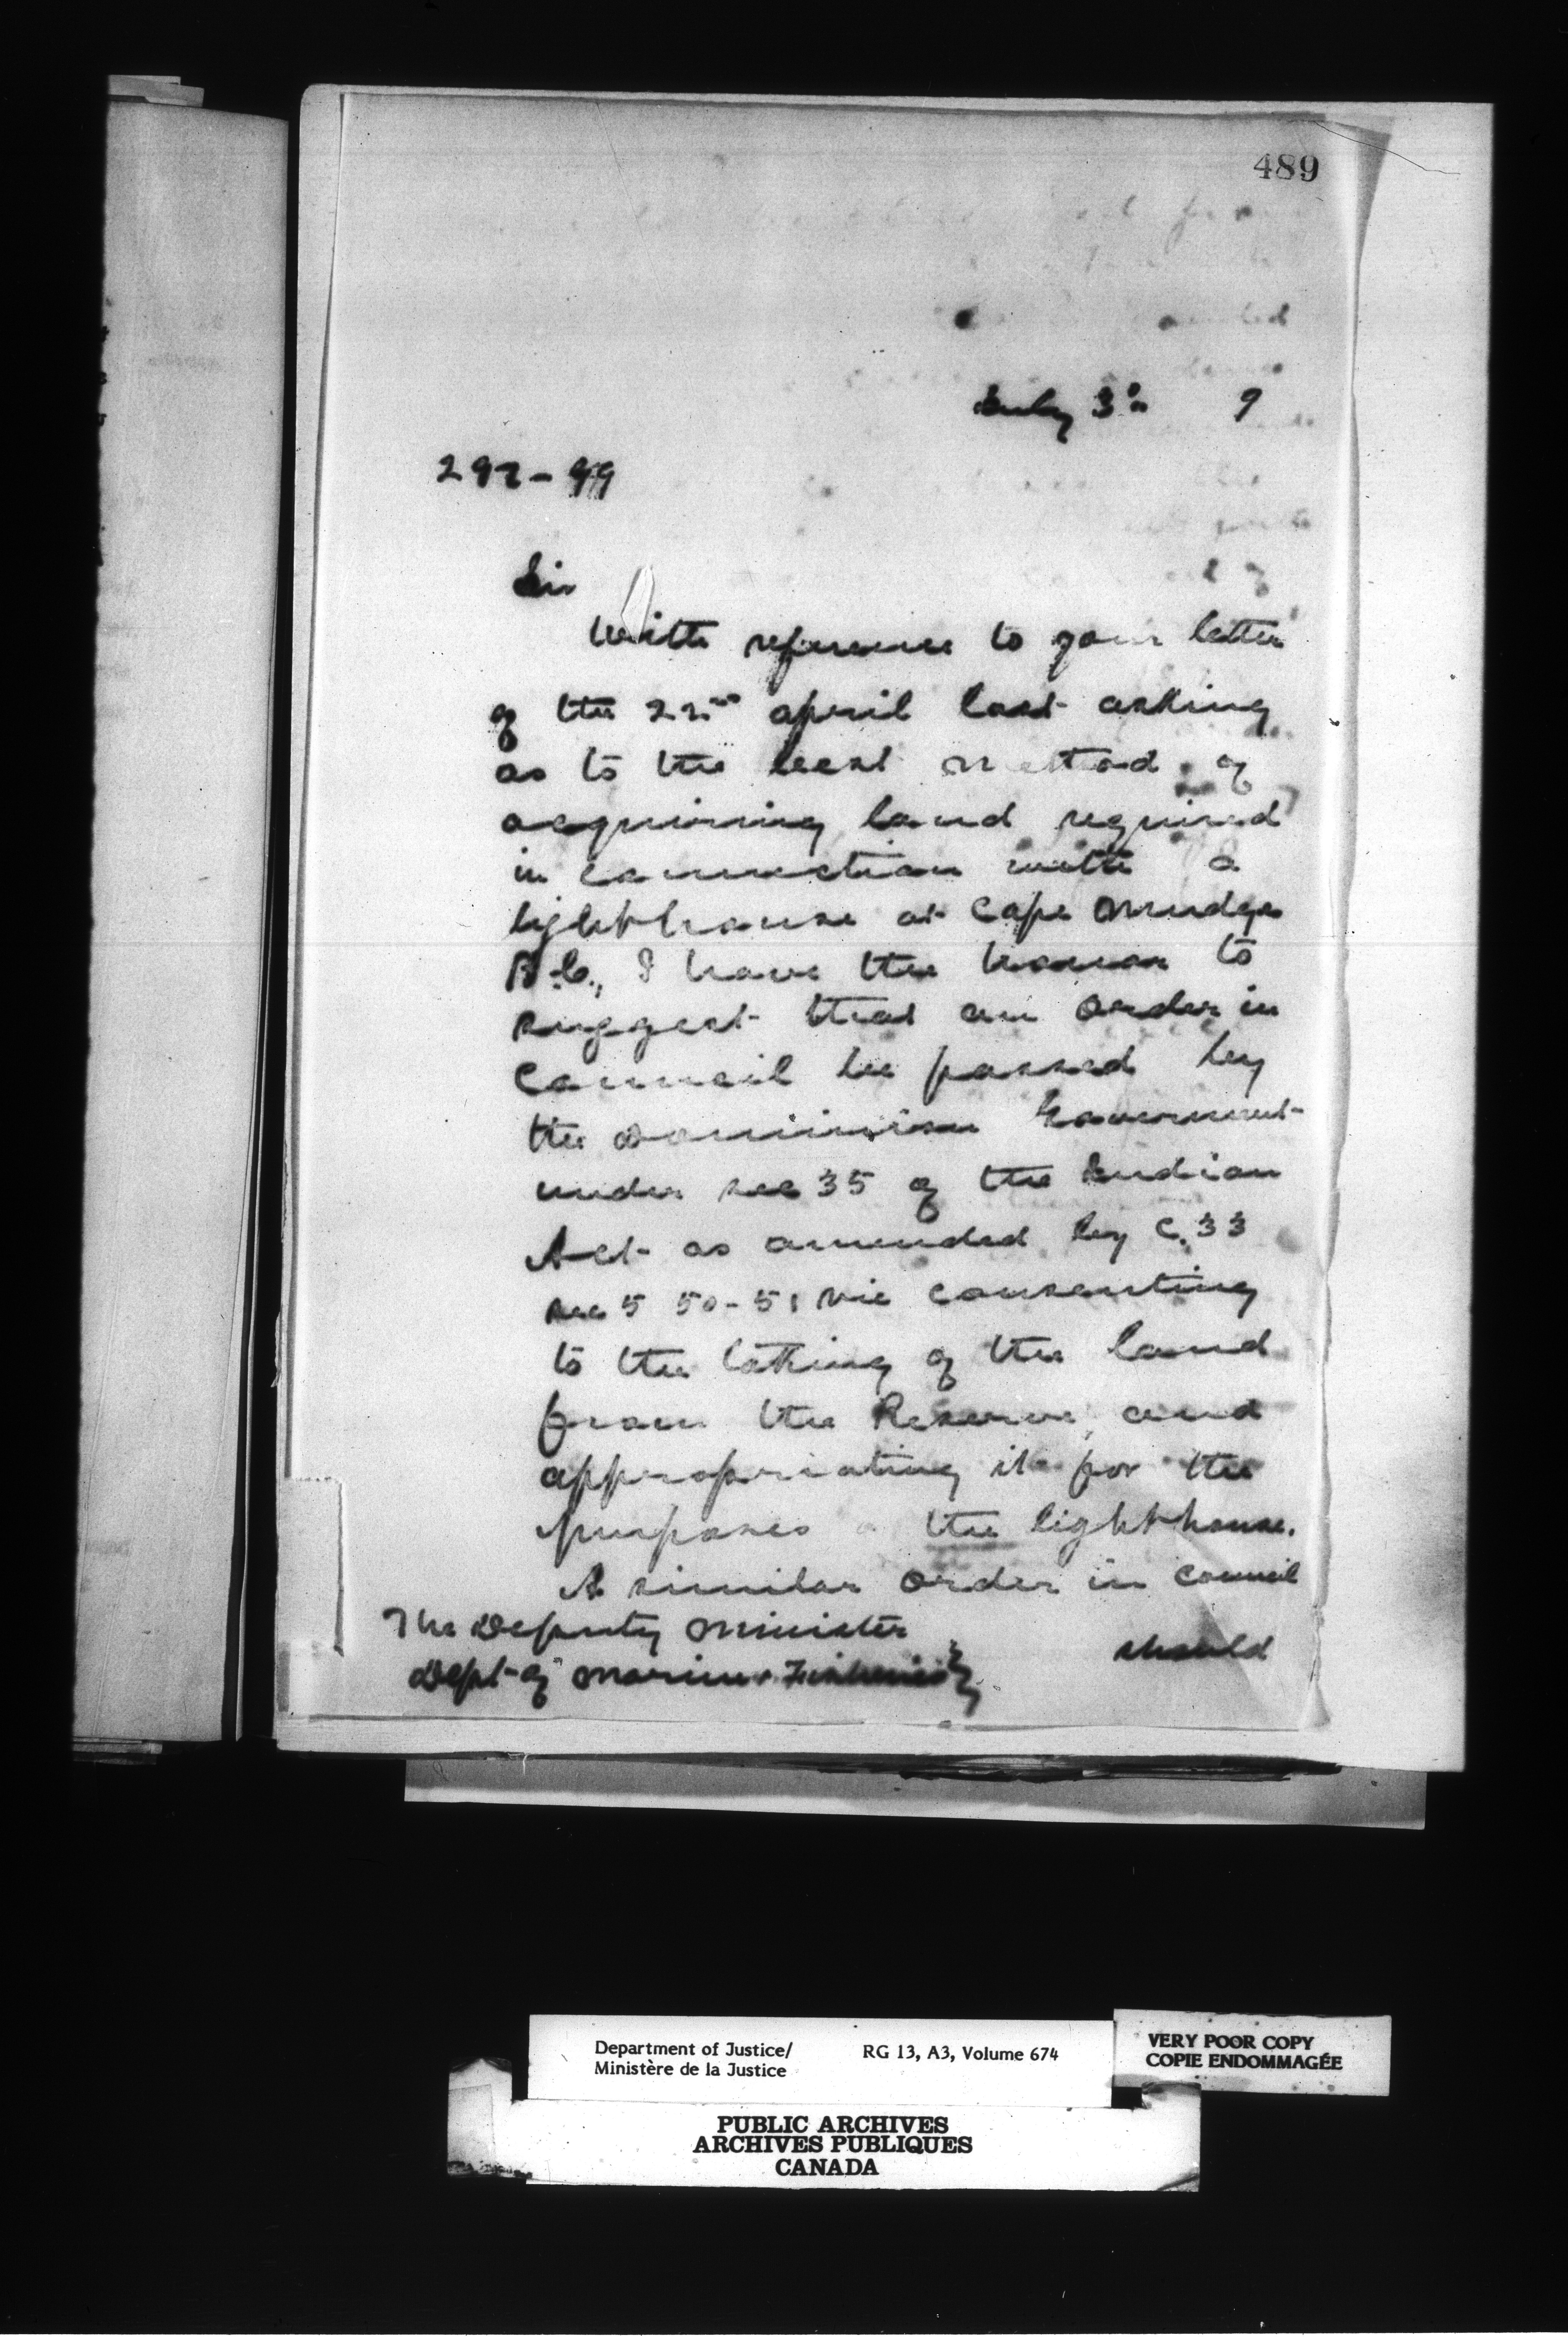 489
July 3rd 9
292-99
Sir
With reference to your letter
of the 22nd april last asking
as to the best method of
acquiring land required
in connection with a
lighthouse at Cape Mudge
B.C., I have the honour to
suggest that an order in
Council be passed by
the Dominion Government
under sec 35 of the Indian
Act as amended by C. 33
sec 5 50-51 Vic consenting
to the taking of the land
from the Reserve, and
appropriating it for the
purposes the lighthouse.
A similar order in council
The Deputy Minister
should
Dept of Marine & Fisheries
Department of Justice/
Ministère de la Justice
RG 13, A3, Volume 674
VERY POOR COPY
COPIE ENDOMMAGÉE
PUBLIC ARCHIVES
ARCHIVES PUBLIQUES
CANADA